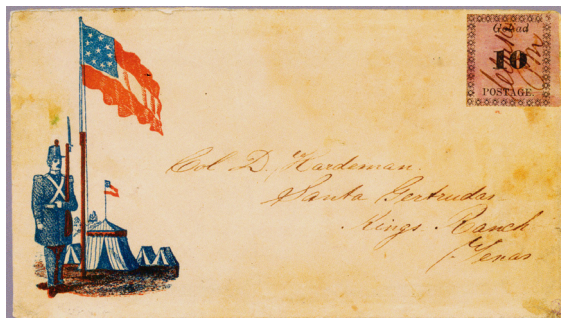 Goliad
10
POSTAGE.
Col D, Hardeman.
Santa Gertrudas
Kings Ranch
Texas